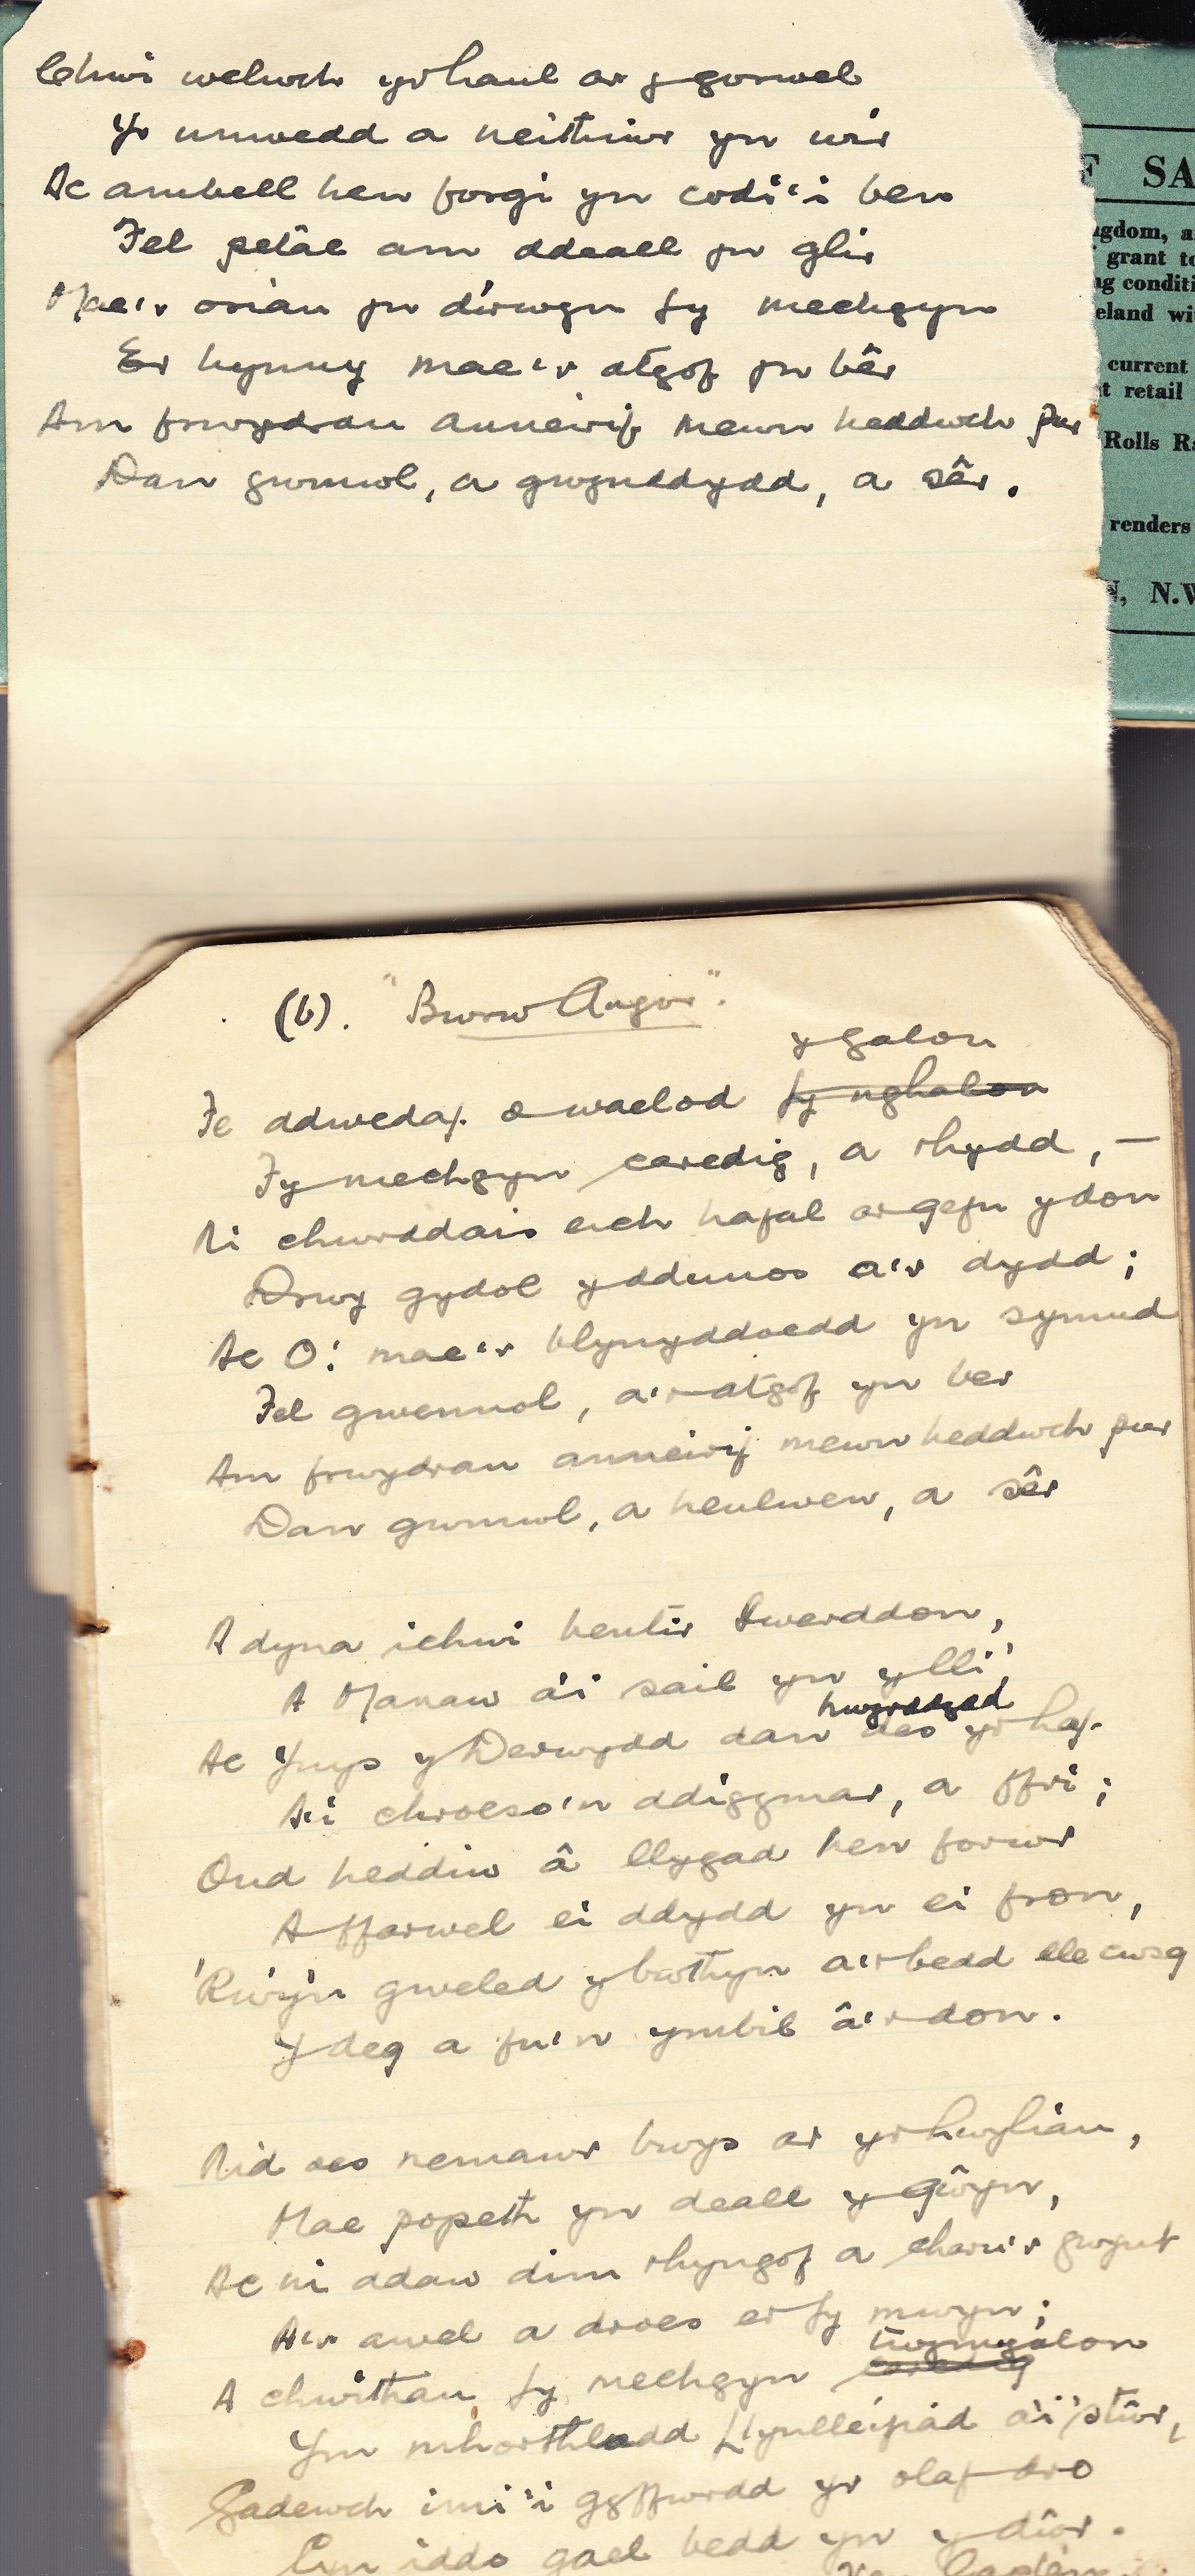 Chwi welwch yr haul ar y gorwel
Yr unwedd a neithiwr yn wir
Ac ambell hen forgi yn codi'i ben
Fel petâe am ddeall yn glir
Mae'r oriau yn dirwyn fy mechgyn
Er hynny mae'r atgof yn bêr
Am frwydrau anneirif mewn heddwch pur
Dan gwmwl, a gwynddydd, a sêr.
F SA
gdom, a
grant to
ng conditi
eland wi
current
t retail
Rolls Ra
renders
N, N.W
(6). "Bwrw Angor".
y galon
Fe ddwedaf o waelod fy nghalon
Fy mechgyn caredig, a rhydd, —
Ni chwrddais eich hafal ar gefn y don
Drwy gydol y ddunos a'r dydd;
Ac O! mae'r blynyddoedd yn symud
Fel gwennol, a'r atgof yn ber
Am frwydrau anneirif mewn heddwch pur
Dan gwmwl, a heulwen, a sêr
A dyna ichwi hentir Iwerddon,
A Manaw a'i sail yn y lli',
hwyrddydd
Ac Ynys y Derwydd dan des yr haf.
A'i chroeso'n ddigymar, a ffri;
Ond heddiw â llygad hen forwr
A ffarwel ei ddydd yn ei fron,
'Rwy'n gweled y bwthyn a'r bedd lle cwsg
Y deg a fu'n ymbil â'r don.
Nid oes nemawr bwys ar yr hwyliau,
Mae popeth yn deall y gŵyn,
Ac ni adaw dim rhyngof a charu'r gwynt
A'r awel a droes er fy mwyn;
twymgalon
A chwithau, fy mechgyn caredig
Ym mhorthladd Llynlleifiad a'i 'stŵr,
Gadewch imi'i gyffwrdd yr olaf dro
Cyn iddo gael bedd yn y dŵr.